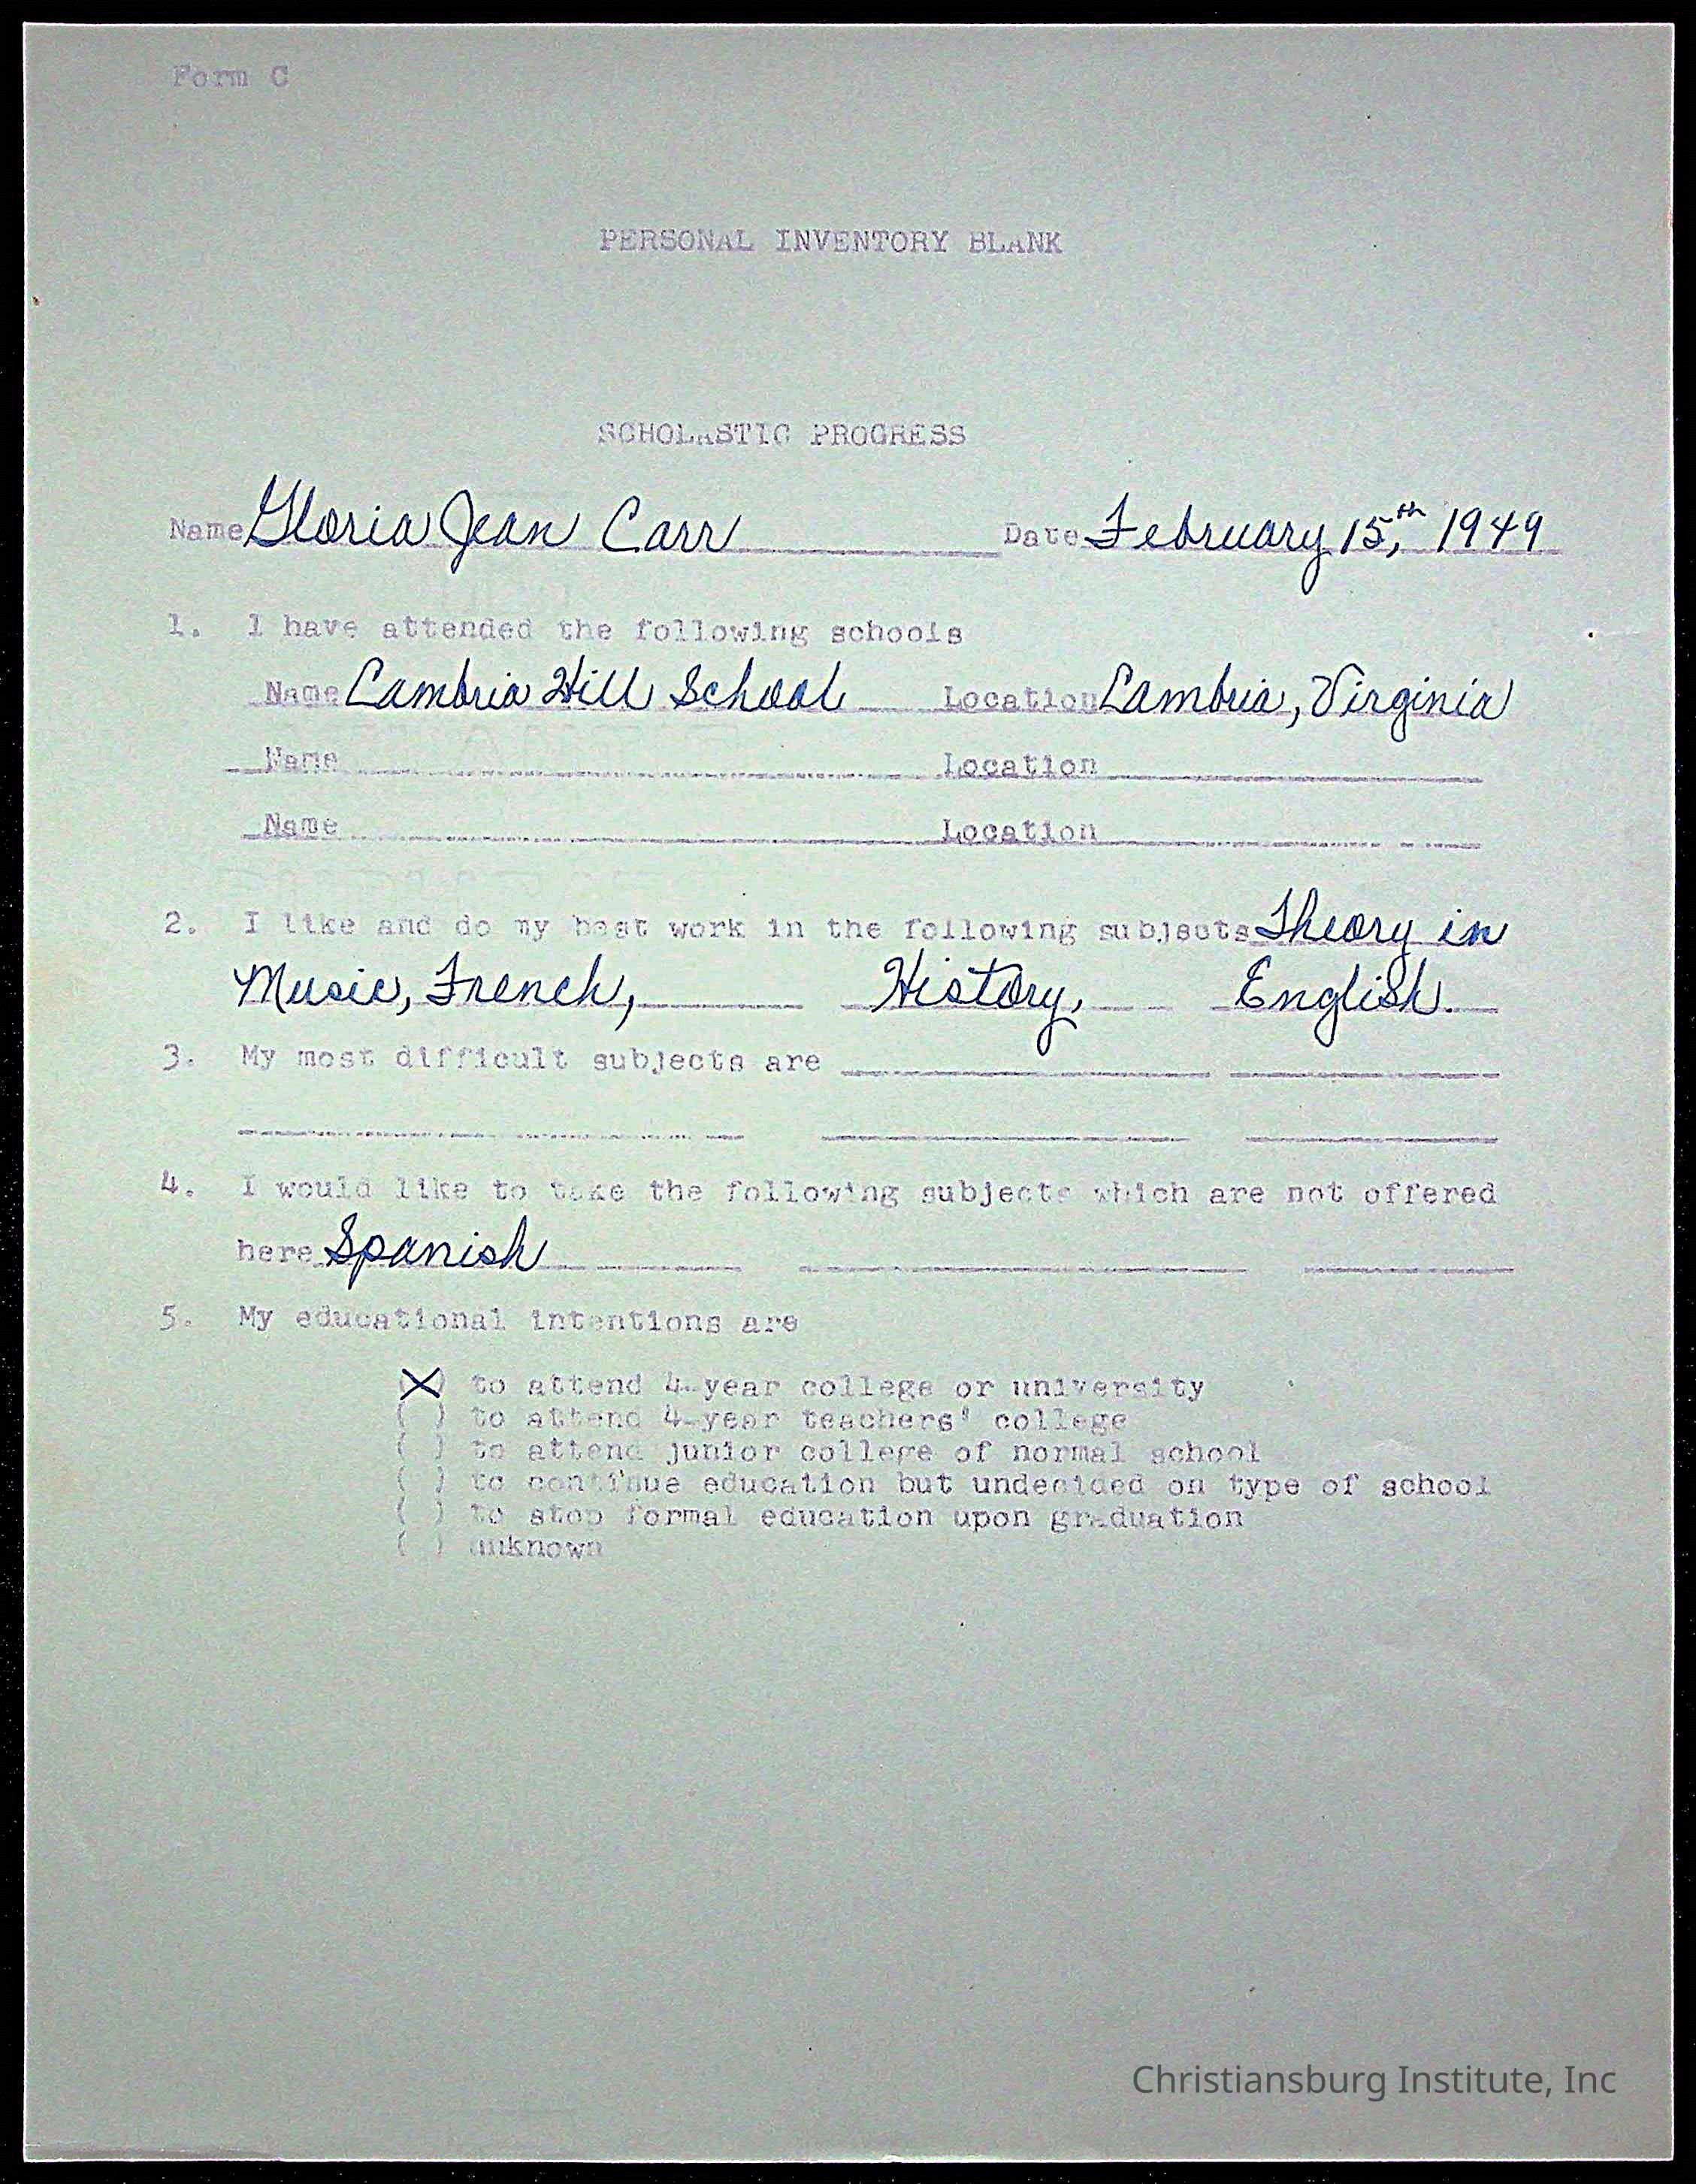 Form C
PERSONAL INVENTORY BLANK
SCHOLASTIC PROGRESS
Name Gloria Jean Carr Date February 15,th 1949
1. I have attended the following schools
Name Cambria Hill School Location Cambria, Virginia
Name Location
Name Location
2. I like and do my best work in the following subjects Theory in
Music, French, History, English.
3. My most difficult subjects are
4. I would like to take the following subjects which are not offered
here Spanish
5. My educational intentions are
(X) to attend 4-year college or university
( ) to attend 4-year teachers' college
( ) to attend junior college of normal school
( ) to continue education but undecided on type of school
( ) to stop formal education upon graduation
( ) unknown
Christiansburg Institute, Inc